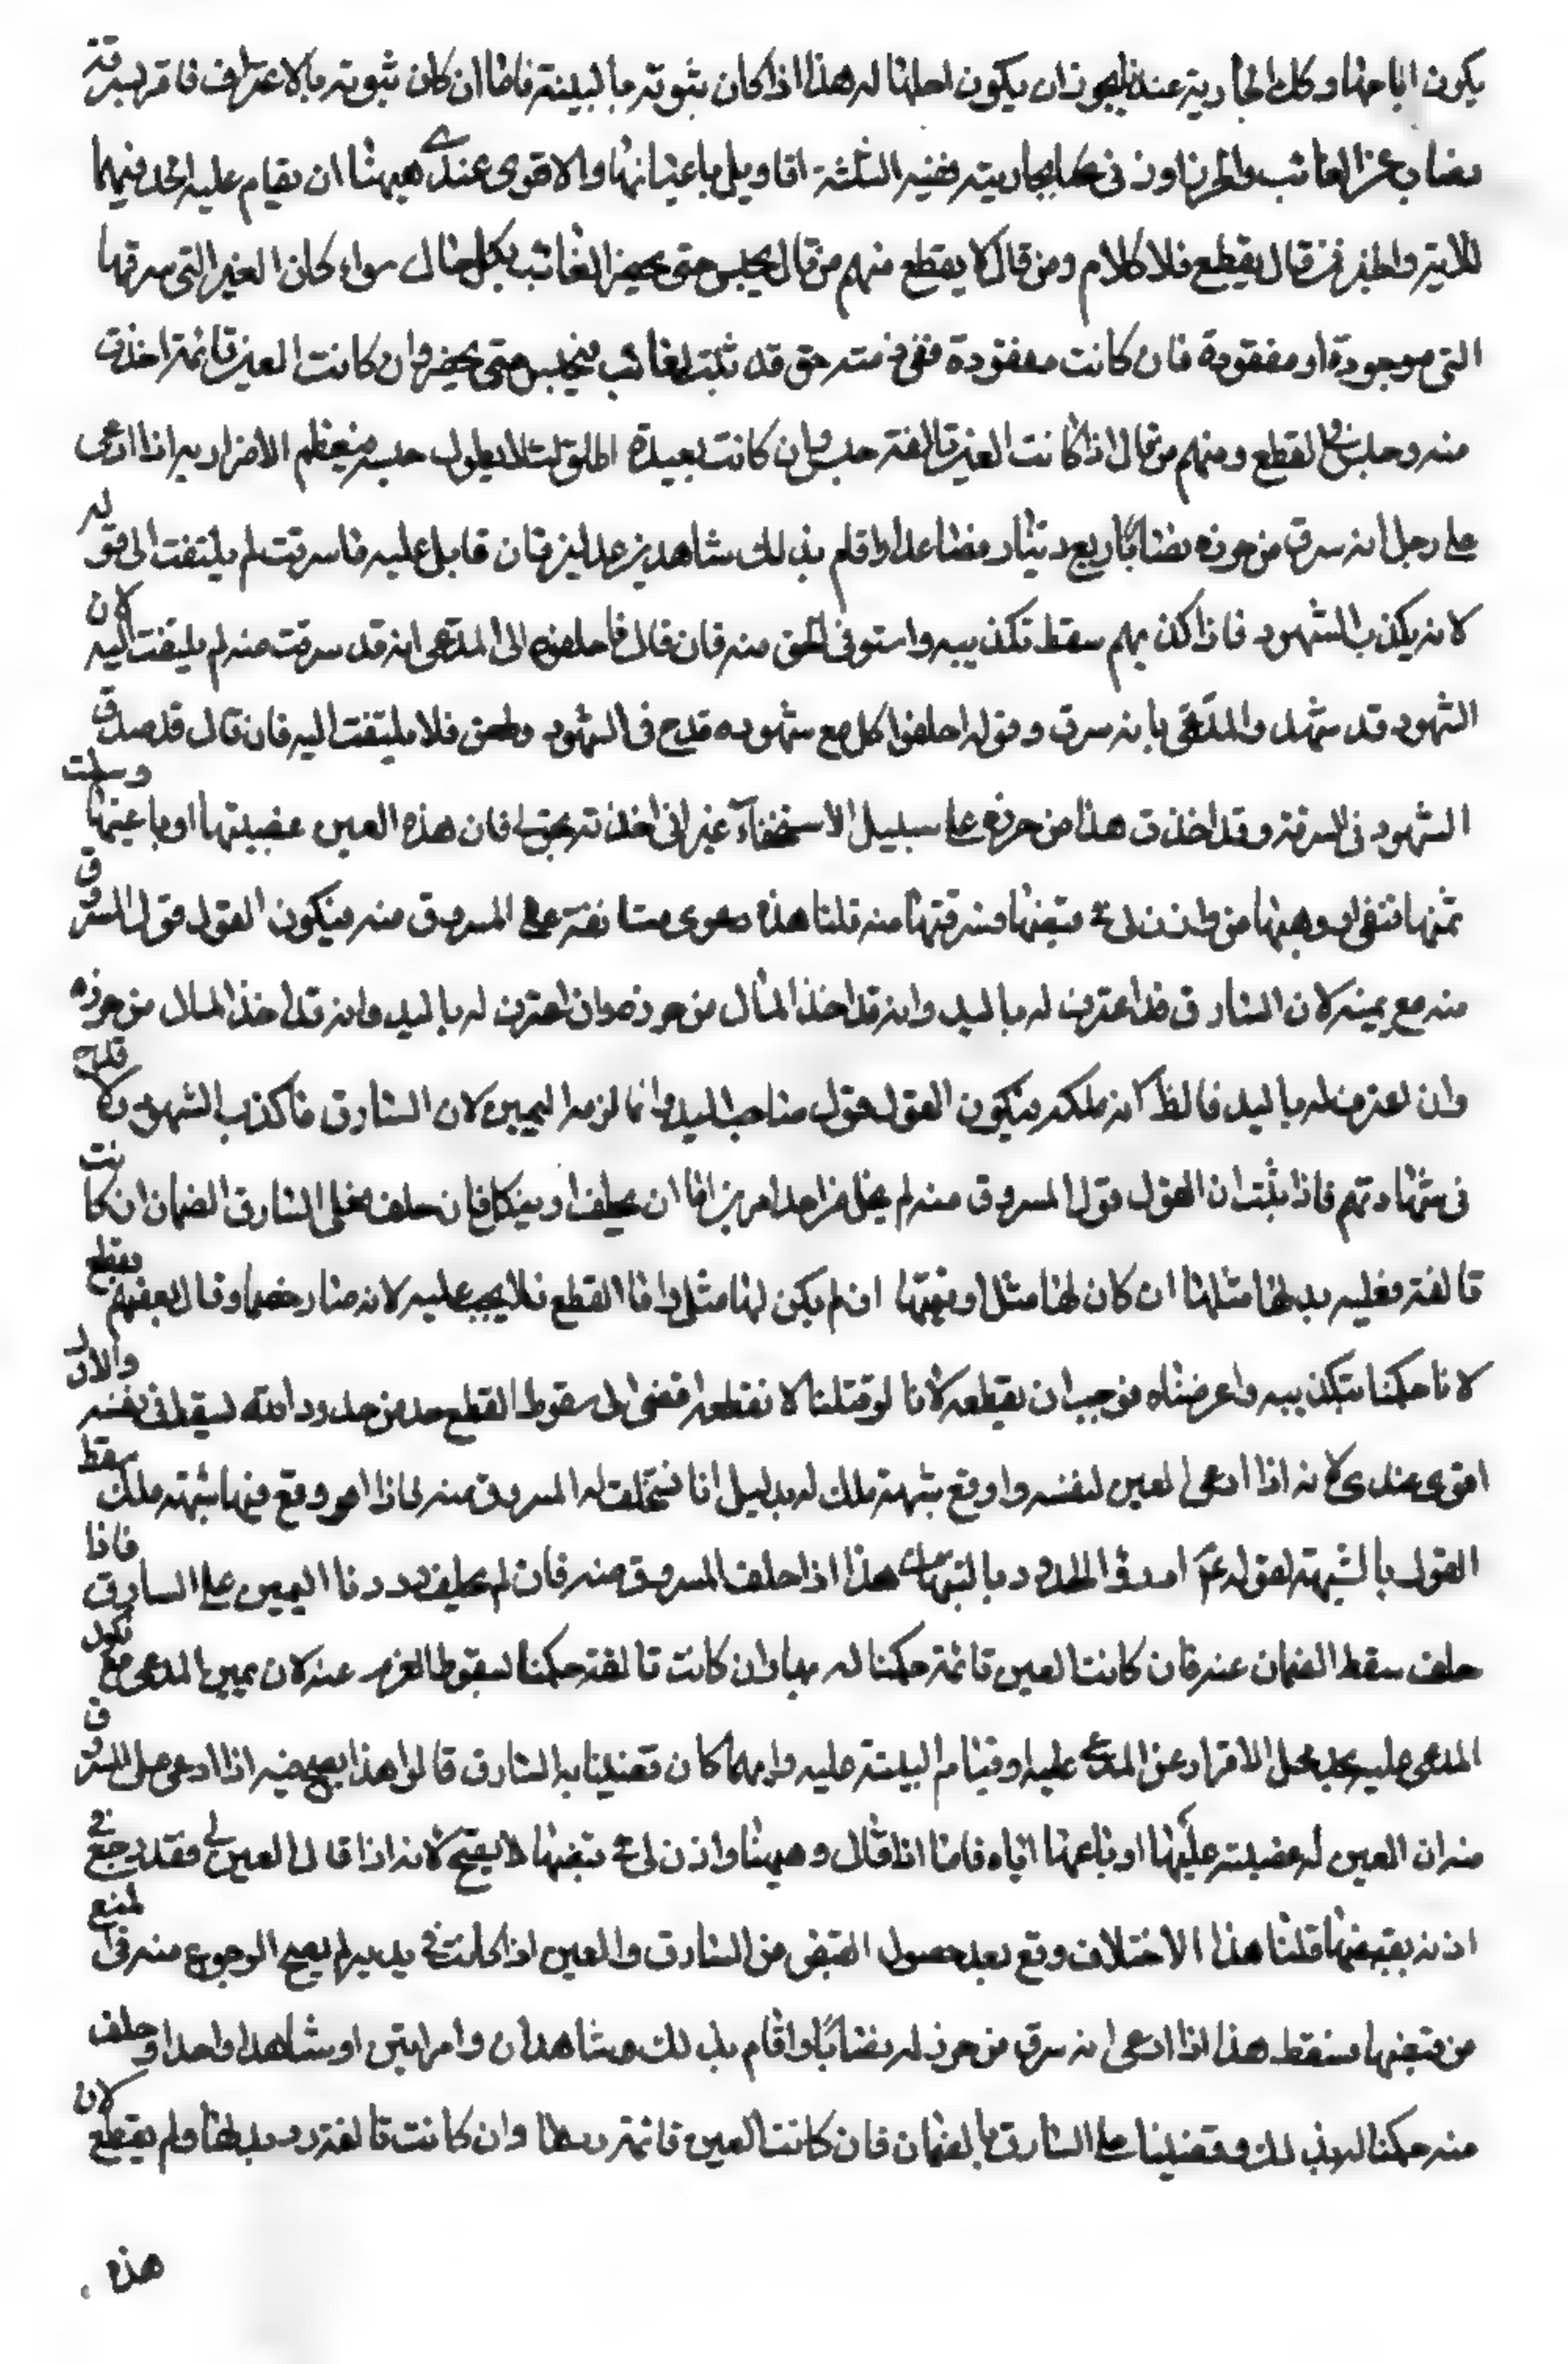 يكون اباحها وكك الجارية عندنا يجوز ان يكون احلها له هذا اذا كان ثبوته بالبينة فاما ان كان ثبوته بالاعتراف فاقر بسرقة
نصاب عن الغائب والحر زاوز نى بجاريته ففيه الثلثة اقاويل باعيانها والاقوى عندى هيهنا ان يقام عليه الحد فيهما
للاية والخبر فمن قال يقطع فلا كلام ومن قال لا يقطع منهم من قال يحبس حتى يحضر الغائب بكل حال سواء كان العين التى سرقها
التى موجودة او مفقودة فان كانت مفقودة ففى ذمته حق قد ثبت لغائب فيحبس حتى يحضر وان كانت العين قائمة اخذت
منه وحبس فى القطع ومنهم من قال اذا كانت العين تالفة حبس وان كانت بعيدة اطلق لئلا يطول حبسه فيعظم الاضرار به اذا ادعى
على رجل انه سرق من حرزه نصابا ربع دينار فصاعدا واقام بذلك شاهدين عدلين فان قابل عليه ما سرقت لم يلتفت الى قوله
لانه يكذب الشهود فاذا كذبهم سقط تكذيبه واستوفى الحق منه فان قال فاحلفوه الى المدعى انه قد سرقت منه لم يلتفت اليه لان
الشهود قد شهد والمدعى بانه سرق وقوله احلفوا كل مع شهوده قدح فى الشهود وطعن فلا يلتفت اليه فان قال قد صدق
الشهود فى السرقة وقد اخذت هذا من حرزه على سبيل الاستخفاء غير انى اخذته بحق لى فان هذه العين غصبيتها او باعنيها وسلمت
ثمنها اليه او وهبنيها من واذن لى فى قبضها فسرقتها منه قلنا هذه دعوى مستانفة على المسروق منه فيكون القول قول المسروق
منه مع يمينه لان السارق قد اعترف له باليد وانه قد اخذ المال من حرزه وان اعترف له باليد وانه قد اخذ المال من حرزه
وان اعترف له باليد فالظ انه ملكه فيكون القول قول صاحب اليد وانما لزمه اليمين لان السارق ما كذب الشهود ولا قدح
فى شهادتهم فاذا ثبت ان القول قول المسروق منه لم يخل من احد امرين اما ان يحلف او ينكل فان حلف فعلى السارق الضمان ان كانت
تالفة فعليه بدلها مثلها ان كان لها مثل او قيمتها ان لم يكن لها مثل واما القطع فلا يجب عليه لانه صار خصما وقال بعضهم يقطع
لانا حكمنا بتكذيبه واعرضناه فوجب ان يقطعه لانا لو قتلنا لا نقطعه افضى الى سقوط القطع حد من حدود الله ليقطع فى نفسه والاول
اقوى عندى لانه اذا ادعى العين لنفسه واوقع شبهة ملك له بدليل انا نستحلف له المسروق منه فاذا وقع فيها شبهة ملك سقط
القول بالشبهة لقوله عم ادرؤا الحدود بالشبهات هذا اذا حلف المسروق منه فان لم يحلف رددنا اليمين على السارق فاذا
حلف سقط الضمان عنه فان كانت العين قائمة حكمنا له بها وان كانت تالفة حكمنا لسقوط الغرم عنه لان يمين المدعى مع نكول
المدعى عليه يحل محل الاقرار عن المدعى عليه او قيام البينة عليه وايهما كان قضينا به السارق قالوا هذا يصح فيه اذا ادعى على المسروق
منه ان العين له غصبته عليها او باعها اياه فاما اذا قال وهبها واذن لى فى قبضها لا يصح لانه اذا قال العين لى فقد رجع فى
اذنه بقبضها قلنا هذا الاختلاف وقع بعد حصول القبض من السارق والعين اذا كانت فى يديه لم يصح الرجوع منه فى المنع
من قبضها فسقط هذا اذا ادعى انه سرق من حرز له نصابا واقام بذلك شاهدان وامراتين او شاهدا واحدا وحلف
منه حكمنا له بذلك وقضينا على السارق بالضمان فان كانت العين قائمة ردها وان كانت تالفة رد بدلها ولم يقطع لان
هذه